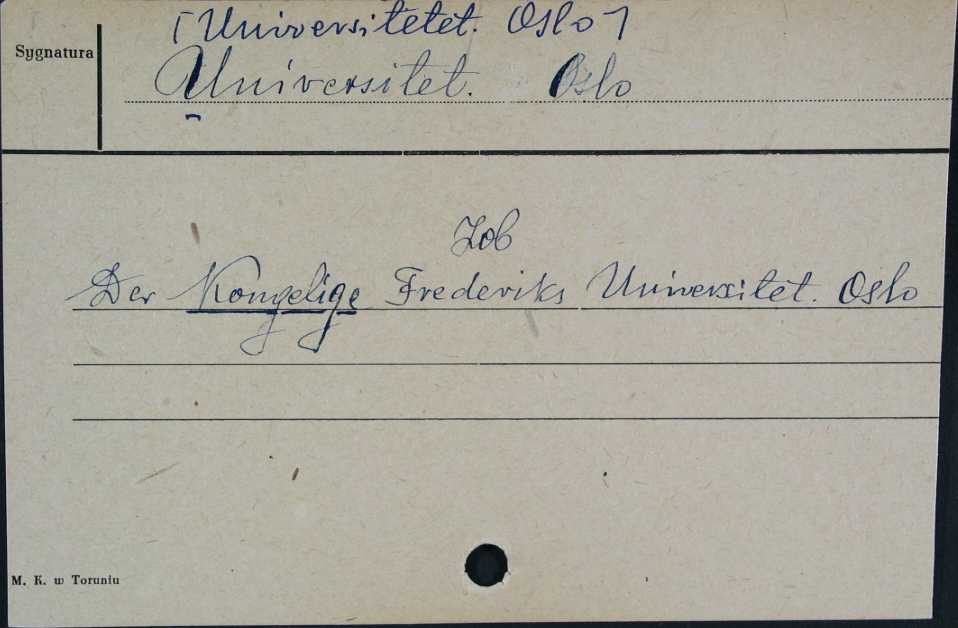 [Universitetet. Oslo]
Sygnatura
Universitet. Oslo
Zob
Der Kongelige Frederiks Universitet. Oslo
M. K. w Toruniu